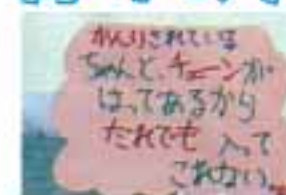 かんりされている
ちゃんと、チェーンが
はってあるから
だれでも 入って
これない。